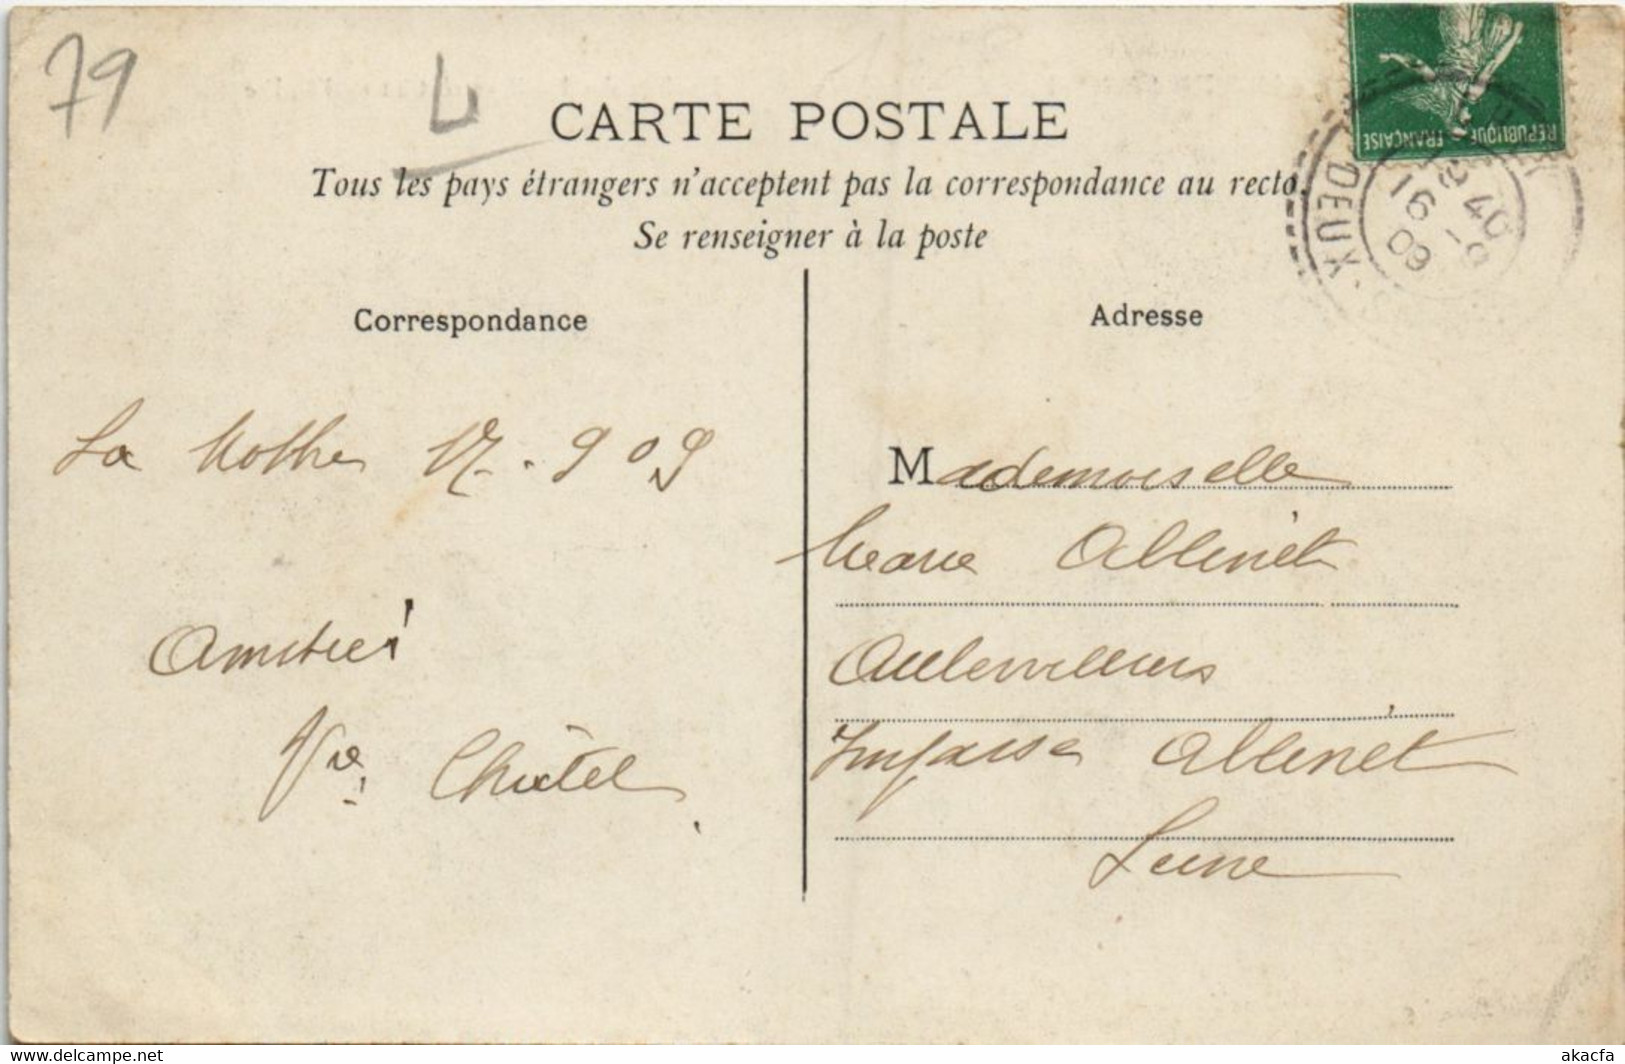 79 L
CARTE POSTALE
Tous les pays étrangers n'acceptent pas la correspondance au recto.
Se renseigner à la poste
REPUBLIQUE FRANÇAISE
DEUX
16
40
9
09
Correspondance
La Mothe 17-9 09
Amitiés
Vve Châtel
Adresse
Mademoiselle
Marie Allinet
Aubervilliers
Impasse Allinet
Seine
www.delcampe.net
akacfa